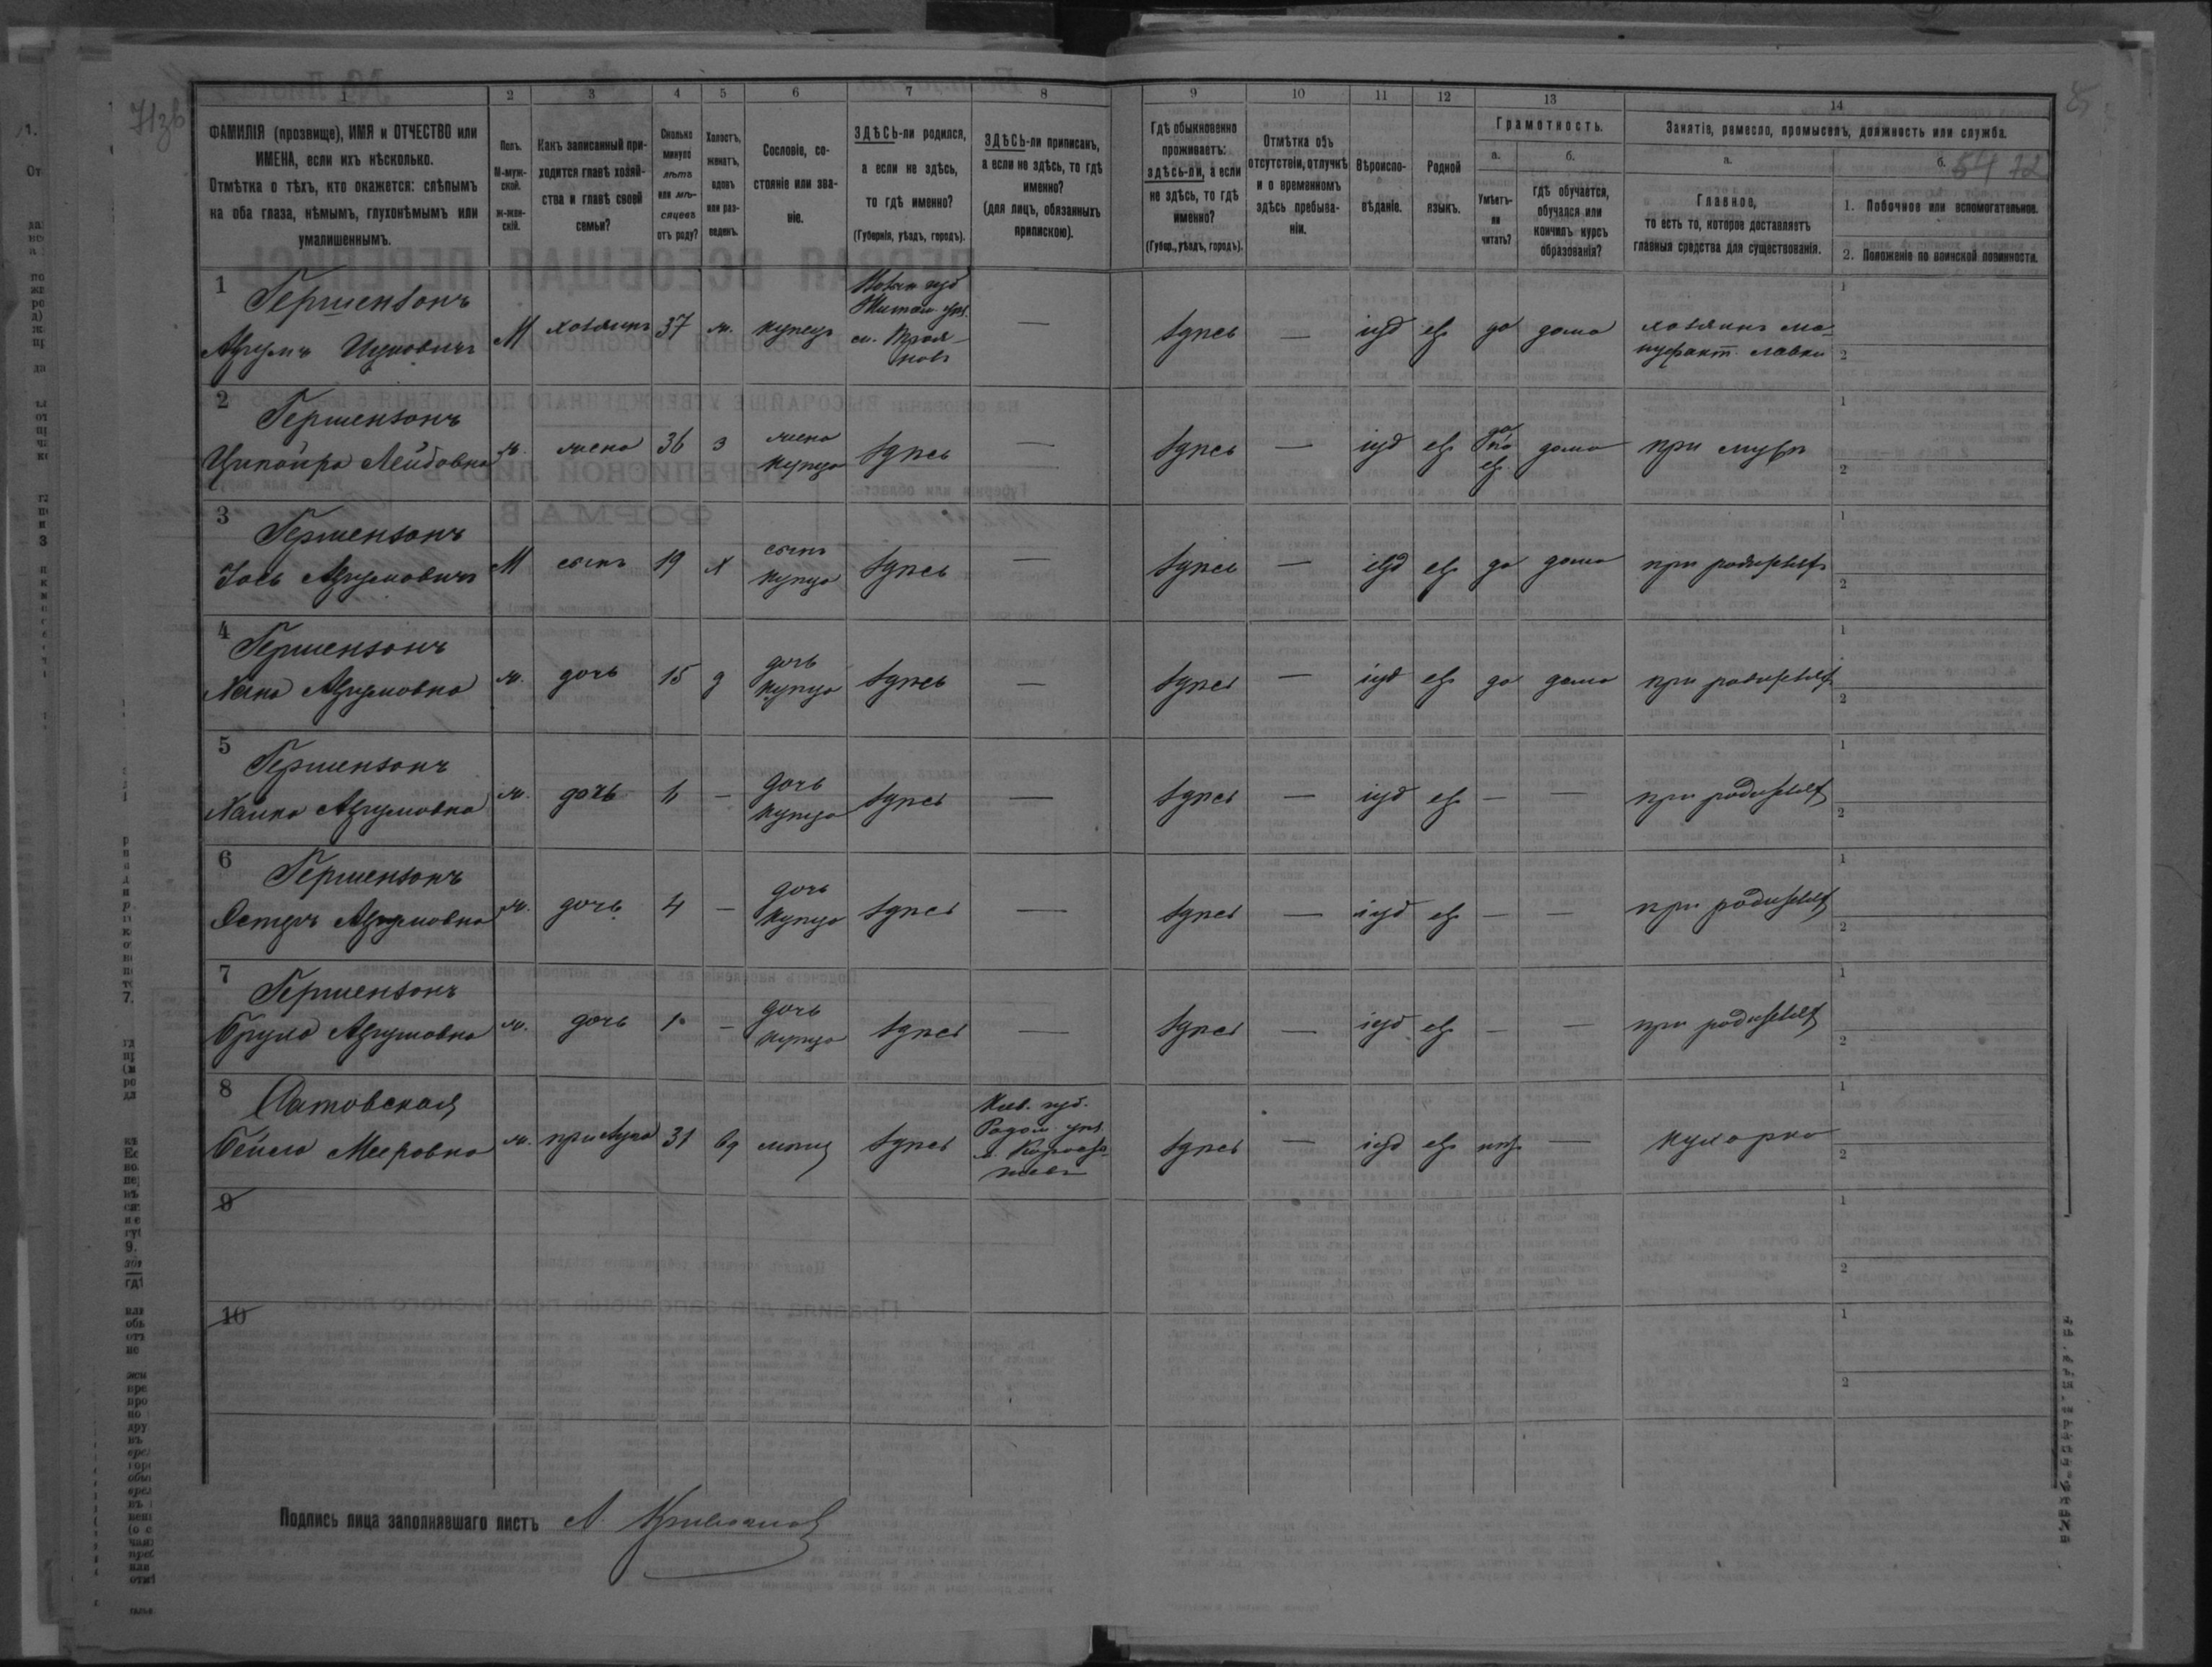 71зв
1 2 3 4 5 6 7 8 9 10 11 12 13 14
ФАМИЛІЯ (прозвище), ИМЯ и ОТЧЕСТВО или
ИМЕНА, если ихъ нѣсколько.
Отмѣтка о тѣхъ, кто окажется: слѣпымъ
на оба глаза, нѣмымъ, глухонѣмымъ или
умалишеннымъ.
Полъ.
М-муж-
ской.
ж-жен-
скій.
Какъ записанный при-
ходится главѣ хозяй-
ства и главѣ своей
семьи?
Сколько
минуло
лѣтъ
или мѣ-
сяцевъ
отъ роду?
Холостъ,
женатъ,
вдовъ
или раз-
веденъ.
Сословіе, со-
стояніе или зва-
ніе.
ЗДѢСЬ-ли родился,
а если не здѣсь,
то гдѣ именно?
(Губернія, уѣздъ, городъ).
ЗДѢСЬ-ли приписанъ,
а если не здѣсь, то гдѣ
именно?
(для лицъ, обязанныхъ
припискою).
Гдѣ обыкновенно
проживаетъ:
здѣсь-ли, а если
не здѣсь, то гдѣ
именно?
(Губер., уѣздъ, городъ).
Отмѣтка объ
отсутствіи, отлучкѣ
и о временномъ
здѣсь пребыва-
ніи.
Вѣроиспо-
вѣданіе.
Родной
языкъ.
Грамотность.
а.
Умѣетъ-
ли
читать?
б.
гдѣ обучается,
обучался или
кончилъ курсъ
образованія?
Занятіе, ремесло, промыселъ, должность или служба.
а.
Главное,
то есть то, которое доставляетъ
главныя средства для существованія.
б. 54 72
1. Побочное или вспомогательное.
2. Положеніе по воинской повинности.
1 Гершензонъ
М хозяинъ 37 ж. купецъ
Волын губ
Житом. уѣз.
м. Троя-
новъ
— здѣсь — іуд ев да дома хозяинъ ма-
нуфакт. лавки
1
2
2 Гершензонъ
Ципойра Лейбовна ж. жена 36 з жена
купца здѣсь — здѣсь — іуд ев да
по
ев дома при мужѣ
1
2
3 Гершензонъ
М сынъ 19 х сынъ
купца здѣсь — здѣсь — іуд ев да дома при родителѣ
1
2
4 Гершензонъ
ж. дочь 15 д дочь
купца здѣсь — здѣсь — іуд ев да дома при родителѣ
1
2
5 Гершензонъ
ж. дочь — дочь
купца здѣсь — здѣсь — іуд ев — — при родителѣ
1
2
6 Гершензонъ
ж. дочь 4 — дочь
купца здѣсь — здѣсь — іуд ев — — при родителѣ
1
2
7 Гершензонъ
ж. дочь 1 — дочь
купца здѣсь — здѣсь — іуд ев — — при родителѣ
1
2
8
Бейла Мееровна ж. прислуга 31 вд мѣщ здѣсь
Кіев. губ.
Радом. уѣз.
здѣсь — іуд ев нѣт — кухарка
1
2
9
1
2
10
1
2
Подпись лица заполнявшаго листъ